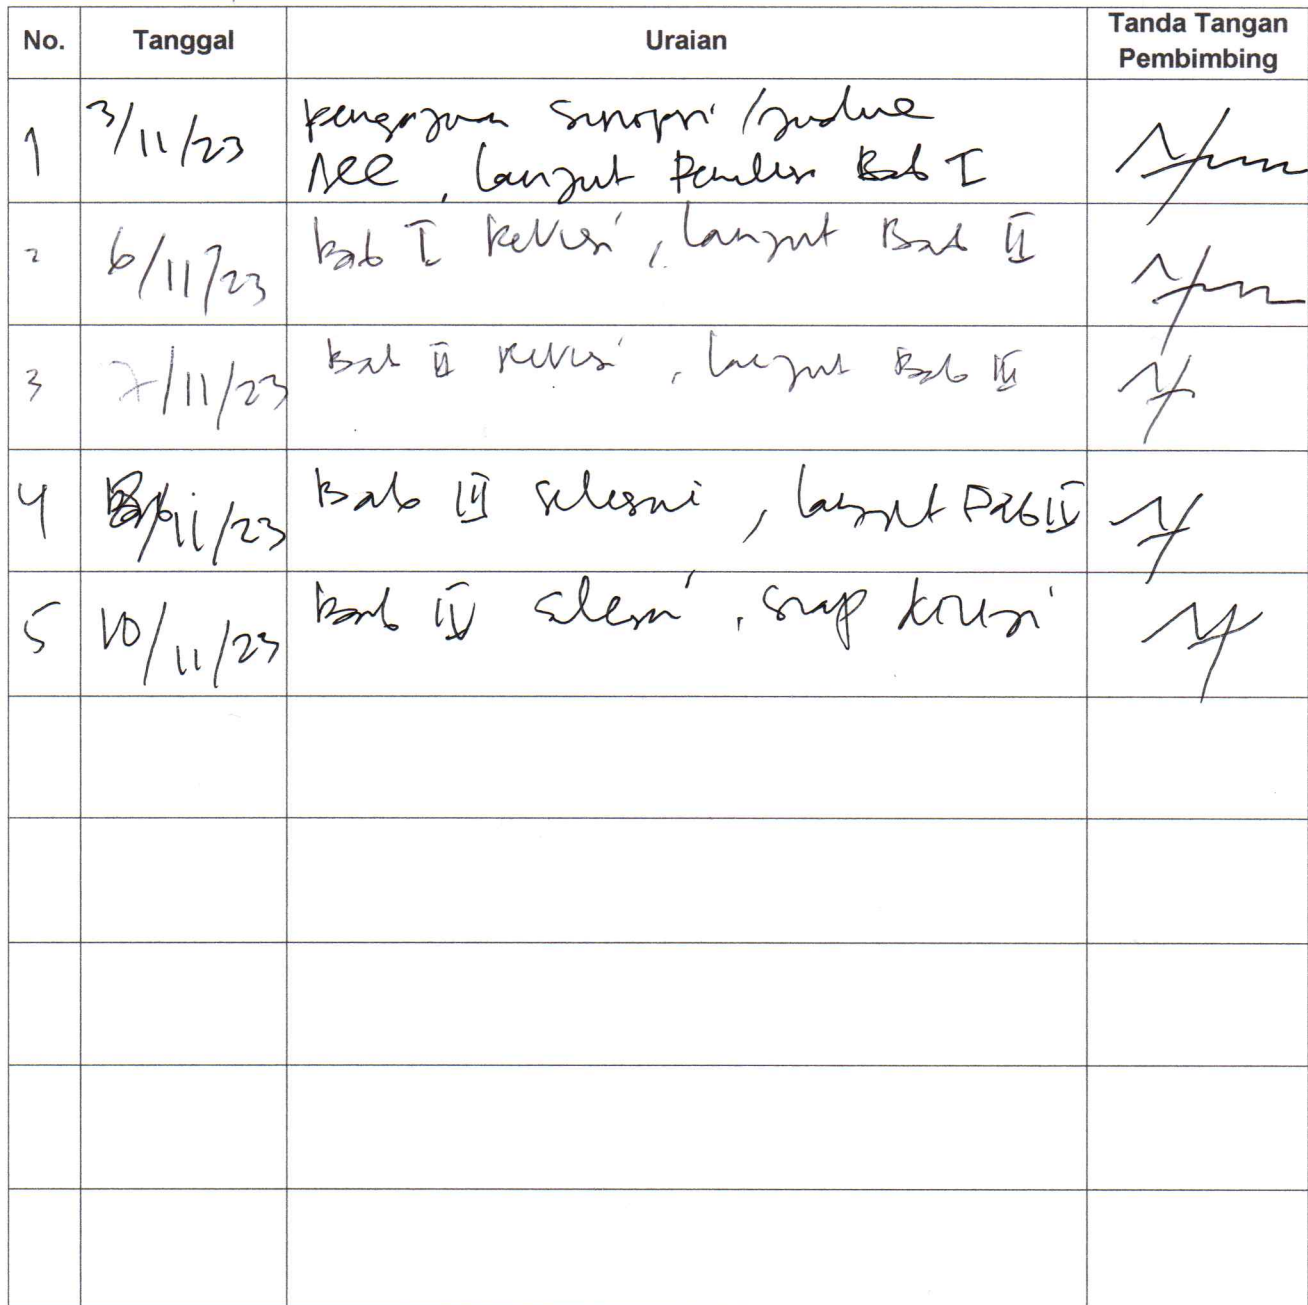 No. Tanggal Uraian Tanda Tangan Pembimbing
1 3/11/23 Pengajuan Sinopsi /
Acc, lanjut Penulisan Bab I
2 6/11/23 Bab I Revisi, lanjut Bab II
3 7/11/23 Bab II Revisi, lanjut Bab III
4 /11/23 Bab III selesai, lanjut Bab IV
5 10/11/23 Bab IV selesai, siap